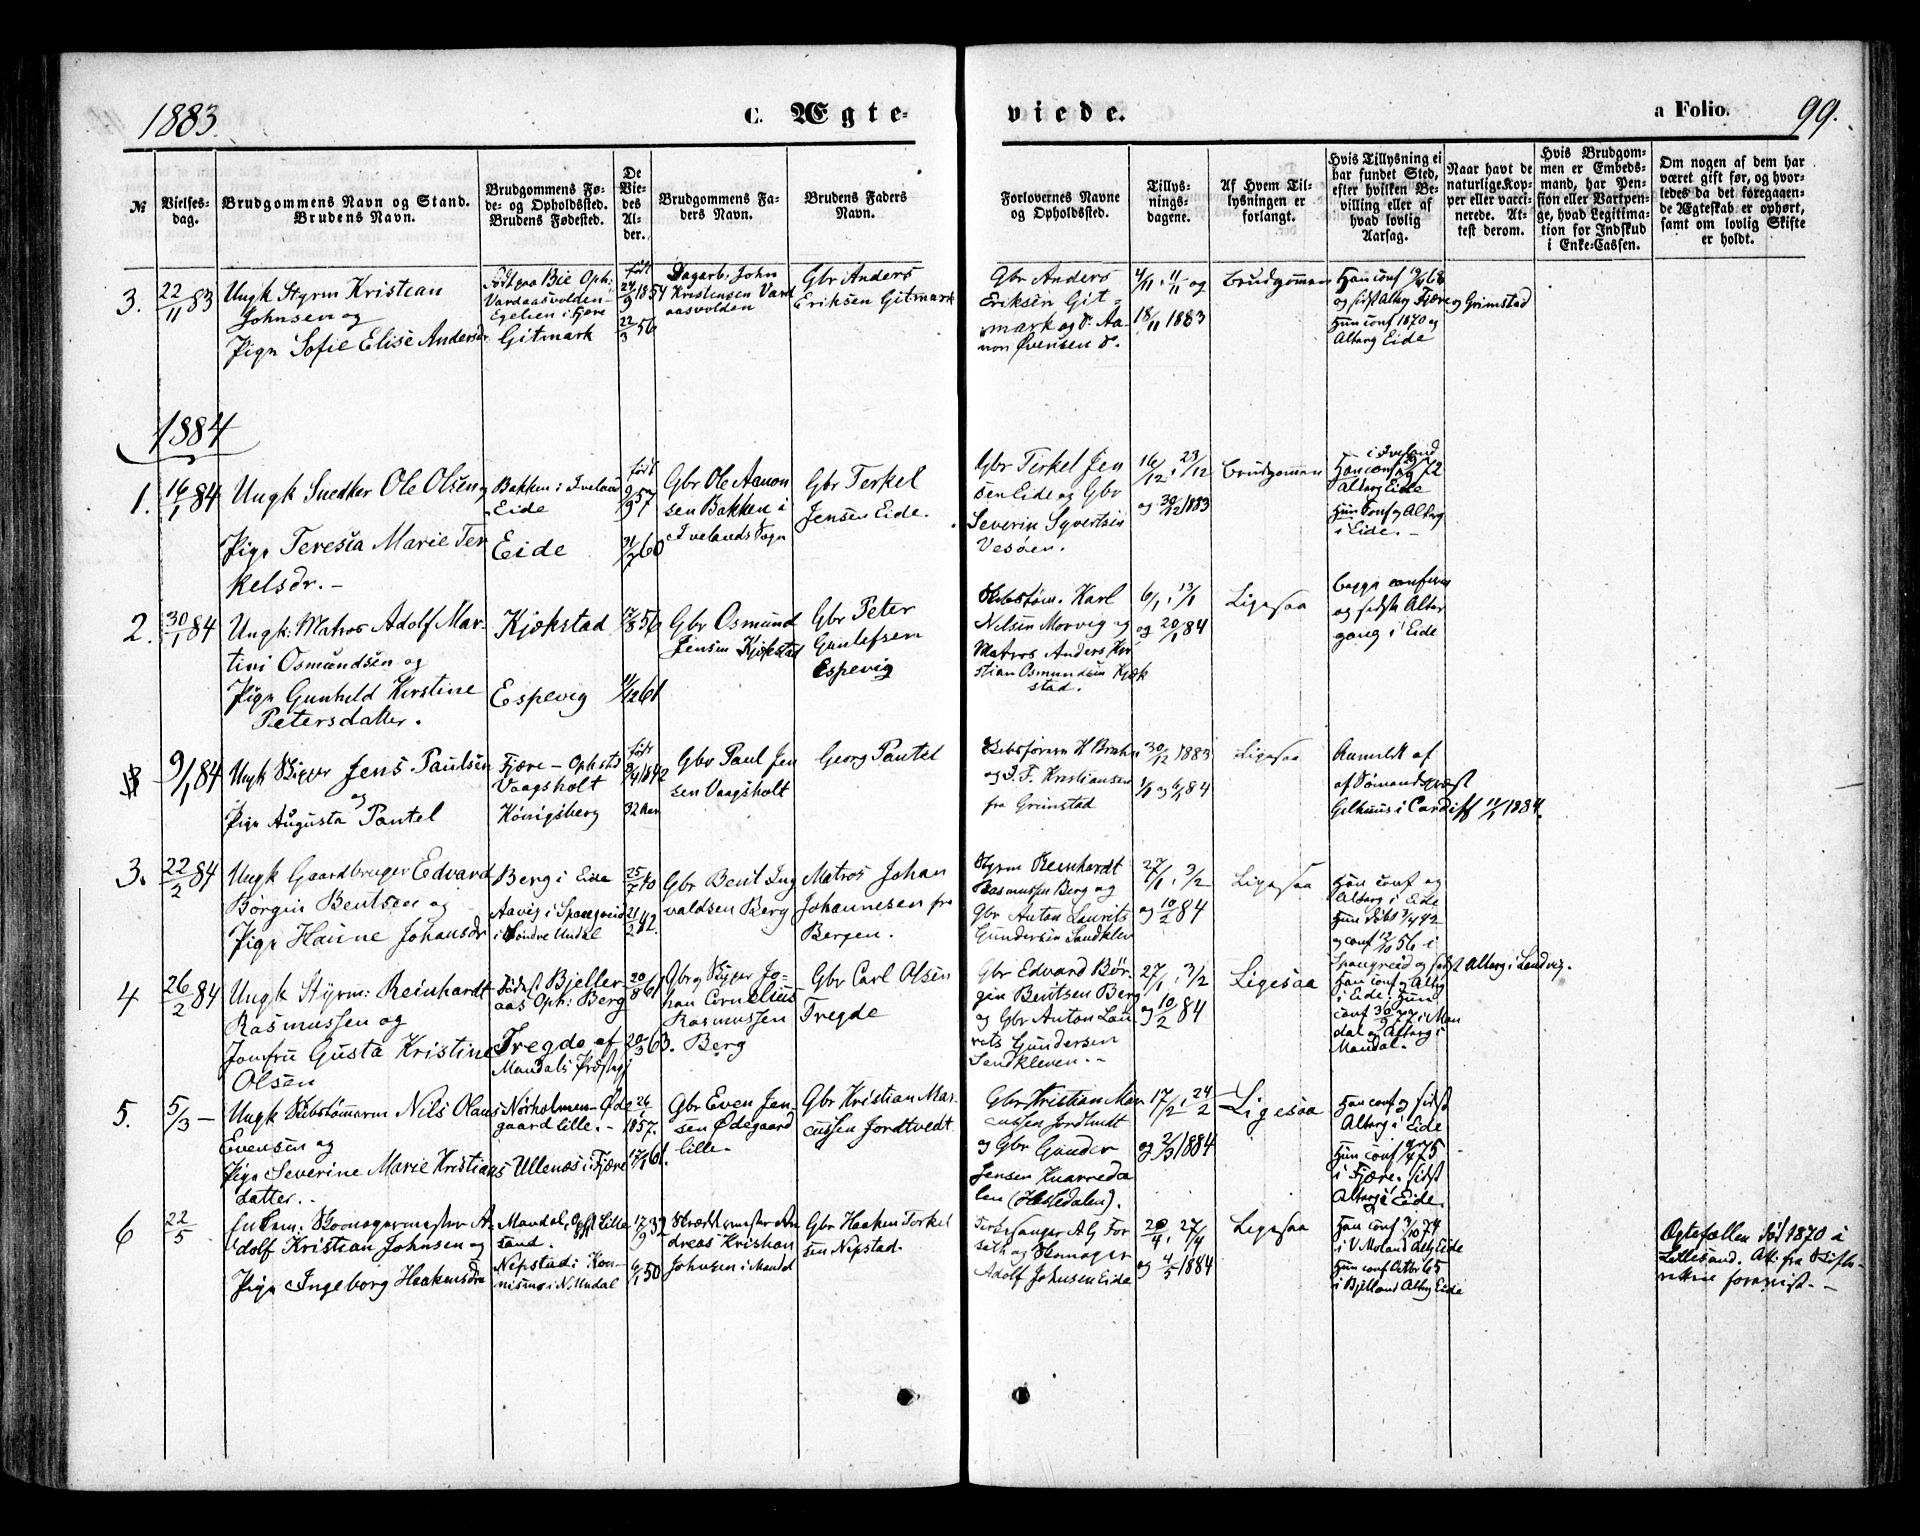 1883.
C. Ægte-
viede.
a Folio.
99.
№
Vielses-
dag.
Brudgommens Navn og Stand.
Brudens Navn.
Brudgommens Fø-
de- og Opholdssted.
Brudens Fødested.
De
Vie-
des
Al-
der.
Brudgommens Fa-
ders Navn.
Brudens Faders
Navn.
Forlovernes Navne
og Opholdssted.
Tillys-
nings-
dagene.
Af Hvem Til-
lysningen er
forlangt.
Hvis Tillysning ei
har fundet Sted,
efter hvilken Be-
villing eller af
hvad lovlig
Aarsag.
Naar havt de
naturlige Kop-
per eller vacci-
nerede. At-
test derom.
Hvis Brudgom-
men er Embeds-
mand, har Pen-
sion eller Vartpen-
ge, hvad Legitima-
tion for Indskud
i Enke-Cassen.
Om nogen af dem har
været gift før, og hvor-
ledes da det foregaaen-
de Ægteskab er ophørt,
samt om lovlig Skifte
er holdt.
3.
22/11 83
Ungk Styrm Kristian
Johnsen og
Pign Sofie Elise Andersdr
Født paa Bie Oph:
Vardaasvolden
Egelsen i Fjære
Gitmark
født
24/9 1854
22/3 56
Dagarb. John
Kristensen Vard
aasvolden
Gbr Anders
Eriksen Gitmark
Gbr Anders
Eriksen Git-
mark og S. Aa-
non Øvensen S.
4/11, 11/11 og
18/11 1883
Brudgommen
Han conf 68
og sidst Altrg Fjære og Grimstad
Hun conf 1870 og
Altarg Eide
1884
1.
16/1 84
Ungk Snedker Ole Olsen og
Pign Teresia Marie Ter
kelsdr. -
Bakken i Iveland
Eide
Eide
født
9/9 57
31/7 60
Gbr Ole Aanon
sen Bakken i
Ivelands Sogn
Gbr Terkel
Jensen Eide.
Gbr Terkel Jen
sen Eide og Gbr
Severin Syvertsen
Vesøen.
16/12, 23/12
og 30/12 1883
Brudgommen
i Iveland
Han conf 72
Altarg Eide
Hun Conf og Altarg
i Eide. -
2.
30/1 84
Ungk: Matros Adolf Mar-
tini Osmundsen og
Pign Gunhild Kirstine
Petersdatter.
Kjøkstad
Espevig
17/8 56
11/12 61
Gbr Osmund
Jensen Kjøkstad
Gbr Peter
Guntefsen
Espevig
Skibstøm. Karl
Nilsen Morvig og
Matros Anders Kri
stian Osmundsen Kjøk
stad.
6/1, 13/1
og 20/1 84
Ligesaa
begge confirm
og sidste Alter
gang i Eide
9/1 84
Ungk Skipper Jens Paulsen
og
Pign Augusta Pantel
Fjære - Ophsts
Vaagsholt
Königsberg
født
1842
32 Aar
Gbr Paul Jen
sen Vaagsholt
Georg Pantel
Skibsfører H Bruhn
og S. F. Kristiansen
fra Grimstad
30/12 1883
1/1 og 6/1 84
Ligesaa
Anmeldt af
af Sømandsprest
Gelhuus i Cardiff 11/1 1884.
3.
22/2 84
Ungk Gaardbruger Edvard
Børgin Bentsen og
Pign Hanne Johansdr
Berg i Eide
Aavig i Spangereid
i Søndre Undal
25/7 40
21/2 42.
Gbr Bent Ing
valdsen Berg
Matros Johan
Johannesen fra
Bergen.
Styrm Reinhardt
Rasmussen Berg og
Gbr Anton Laurits
Gundersen Sandklev
27/1, 3/2
og 10/2 84
Ligesaa
Han conf og
Altarg i Eide
Hun døbt 3/4 42
og conf 12/10 56 i
Spangreid og sidst Altarg i Landvig.
4
26/2 84
Ungk Styrm: Reinhardt
Rasmussen og
Jomfru Gusta Kristine
Olsen
Fødest Bjeller
aas Oph: Berg
Tregde af
Mandals Præstegj
20/8 61
20/3 63.
Gbr og Skipper Jo-
han Cornelius
Rasmussen
Berg
Gbr Carl Olsen
Tregde
Gbr Edvard Bør
gin Bentsen Berg
og Gbr Anton Lau
rits Gundersen
Sandkleven. -
27/1, 3/2
og 10/2 84
Ligesaa
Han conf og Altarg
i Eide. Hun
conf 30/9 77 i Man
dal og Altarg i
Mandal.
5.
5/3 -
Ungk Skibstømmerm Nils Olaus
Evensen og
Pign Severine Marie Kristians
datter. -
Nørholmen - Øde
gaard lille. -
Ullenæs i Fjære
26/1
1857.
17/1 61.
Gbr Even Jen-
sen Ødegaard
lille.
Gbr Kristian Mar-
cussen Jordtvedt
Gbr Kristian Mar
cussen Jordtvedt
og Gbr Gunder
Jensen Knarreda
len (Hesledalen).
17/2, 24/2
og 2/3 1884
Ligesaa
Han conf og sidst
Altarg i Eide
Hun conf 75
i Fjære. sidst
Altarg i Eide.
6
22/5
Enkem. Skomagermester A-
dolf Kristian Johnsen og
Pign Ingeborg Haakensdr
Mandal, Opst Lille
sand.
Nepstad i Kon-
nismo i N. Undal
17/9 32
6/1 50
Skræddermester An
dreas Kristian
Johnsen i Mandal
Gbr Haaken Torkel
sen Nepstad.
Kirkesanger A G For
seth og Skomager
Adolf Johnsen Eide
20/4, 27/4
og 4/5 1884
Ligesaa
Han conf 3/10 74
i V. Moland Altarg Eide
Hun conf Octbr 65
i Bjelland Altarg Eide
Ægtefællen død 1870 i
Lillesand. Att. fra Skifte-
retten forevist. -